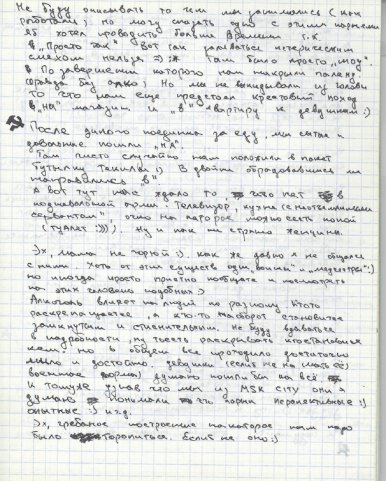 Не буду описывать то чем мы занимались (или
работали), но могу сказать одно с этими парнями
я б хотел проводить больше времени т.к
в "Просто так" вот так заливаться истерическим
смехом нельзя =) Там было просто "шоу".
По завершении которого нам накрыли поляну
(правда без                ) Но мы не выкидывали из головы
то что нам еще предстоял крестовый поход
в "на" магазин и "в" квартиру к девушкам :)
После данного поединка за еду, мы сытые и
довольные пошли "на".
Там чисто случайно нам положили в пакет
бутылку текилы :) В двойне обрадовавшись мы
направились в"
А вот тут нас ждало то чего нет в
подневольной армии. Телевизор, кухня (с неотъемлемыми
             очко на котором можно сесть попой
(туалет :))). Ну и как ни странно женщины.
Эх, мама не горюй :). Как же давно я не общался
с ними. Хоть от этих существ одни "        " и "        " :)
но иногда просто приятно пообщаться и посмотреть
на этих человекоподобных :)
Алкоголь влияет на людей по разному. Кто то
раскрепощается, а кто-то наоборот становится
замкнутым и стеснительным. Не буду вдаваться
в подробности, ну то есть раскрывать кто становился
кем. Но в общем все проходило достаточно
мило и достойно. Девушки (если не на
военное                думаю пошли бы на всё
К тому же узнав что мы из MSK city они я
думаю понимали что парни перспективные :)
опытные :) и т.д.
Эх, гребаное построение на которое нам надо
было торопиться. Если б не оно :)